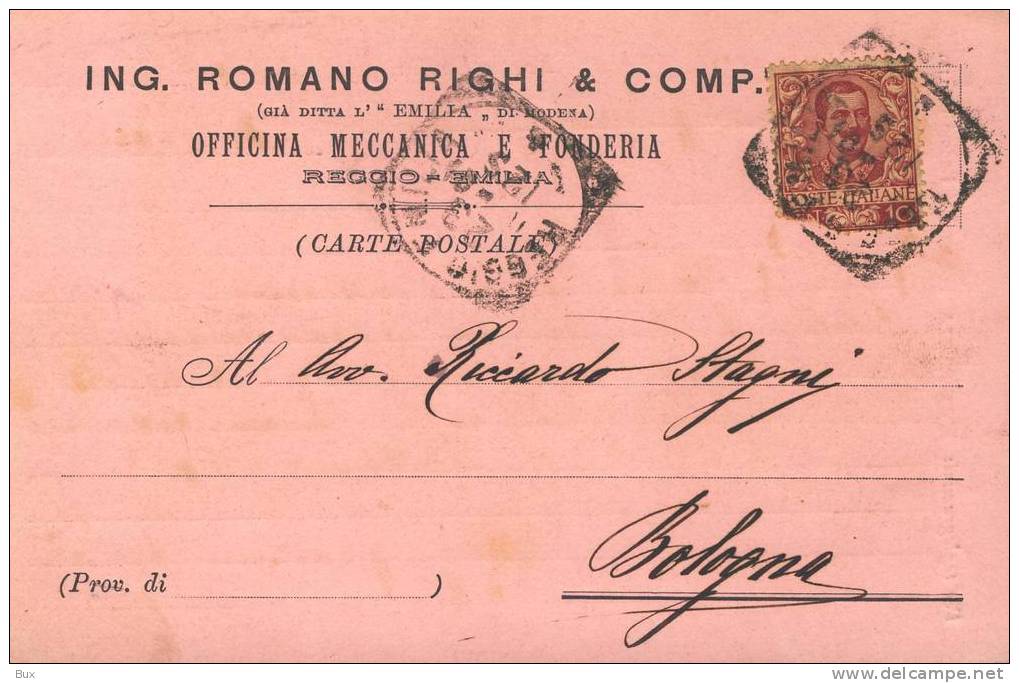 ING. ROMANO RIGHI & COMP.
(GIÀ DITTA L' " EMILIA „ DI MODENA)
OFFICINA MECCANICA E FONDERIA
REGGIO-EMILIA
(CARTE POSTALE)
REGGIO
POSTE ITALIANE
10
Al Avv. Riccardo Stagni
Bologna
(Prov. di )
Bux
delcampe.net